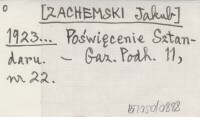 [ZACHEMSKI Jakub]
1923... Poświęcenie Sztan-
daru. — Gaz. Podh. 11,
nr 22.